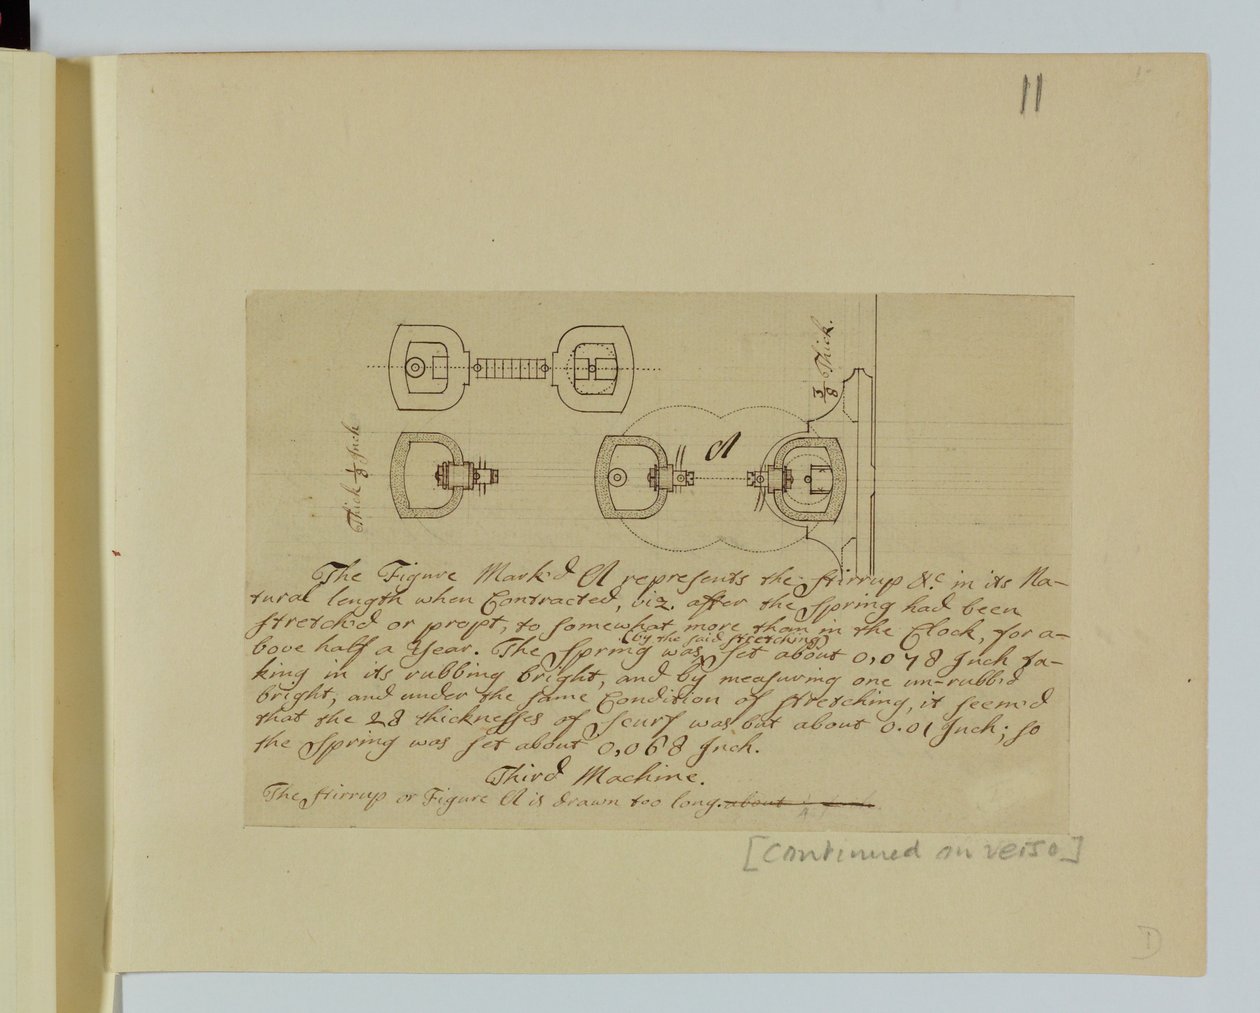 11
3/8 Thick.
Thick 1/8 Inch
A
The Figure Mark'd A represents the stirrup &c. in its Na-
tural length when Contracted, viz. after the Spring had been
stretch'd or propt, to somewhat more than in the Clock, for a-
bove half a Year. The Spring was (by the said stretching) set about 0,078 Inch ta-
king in its rubbing bright, and by measuring one un-rubb'd
bright, and under the same Condition of stretching, it seem'd
that the 28 thicknesses of Scurf was but about 0.01 Inch; so
the Spring was set about 0,068 Inch.
Third Machine.
The stirrup or Figure A is drawn too long. about
[Continued on verso]
D